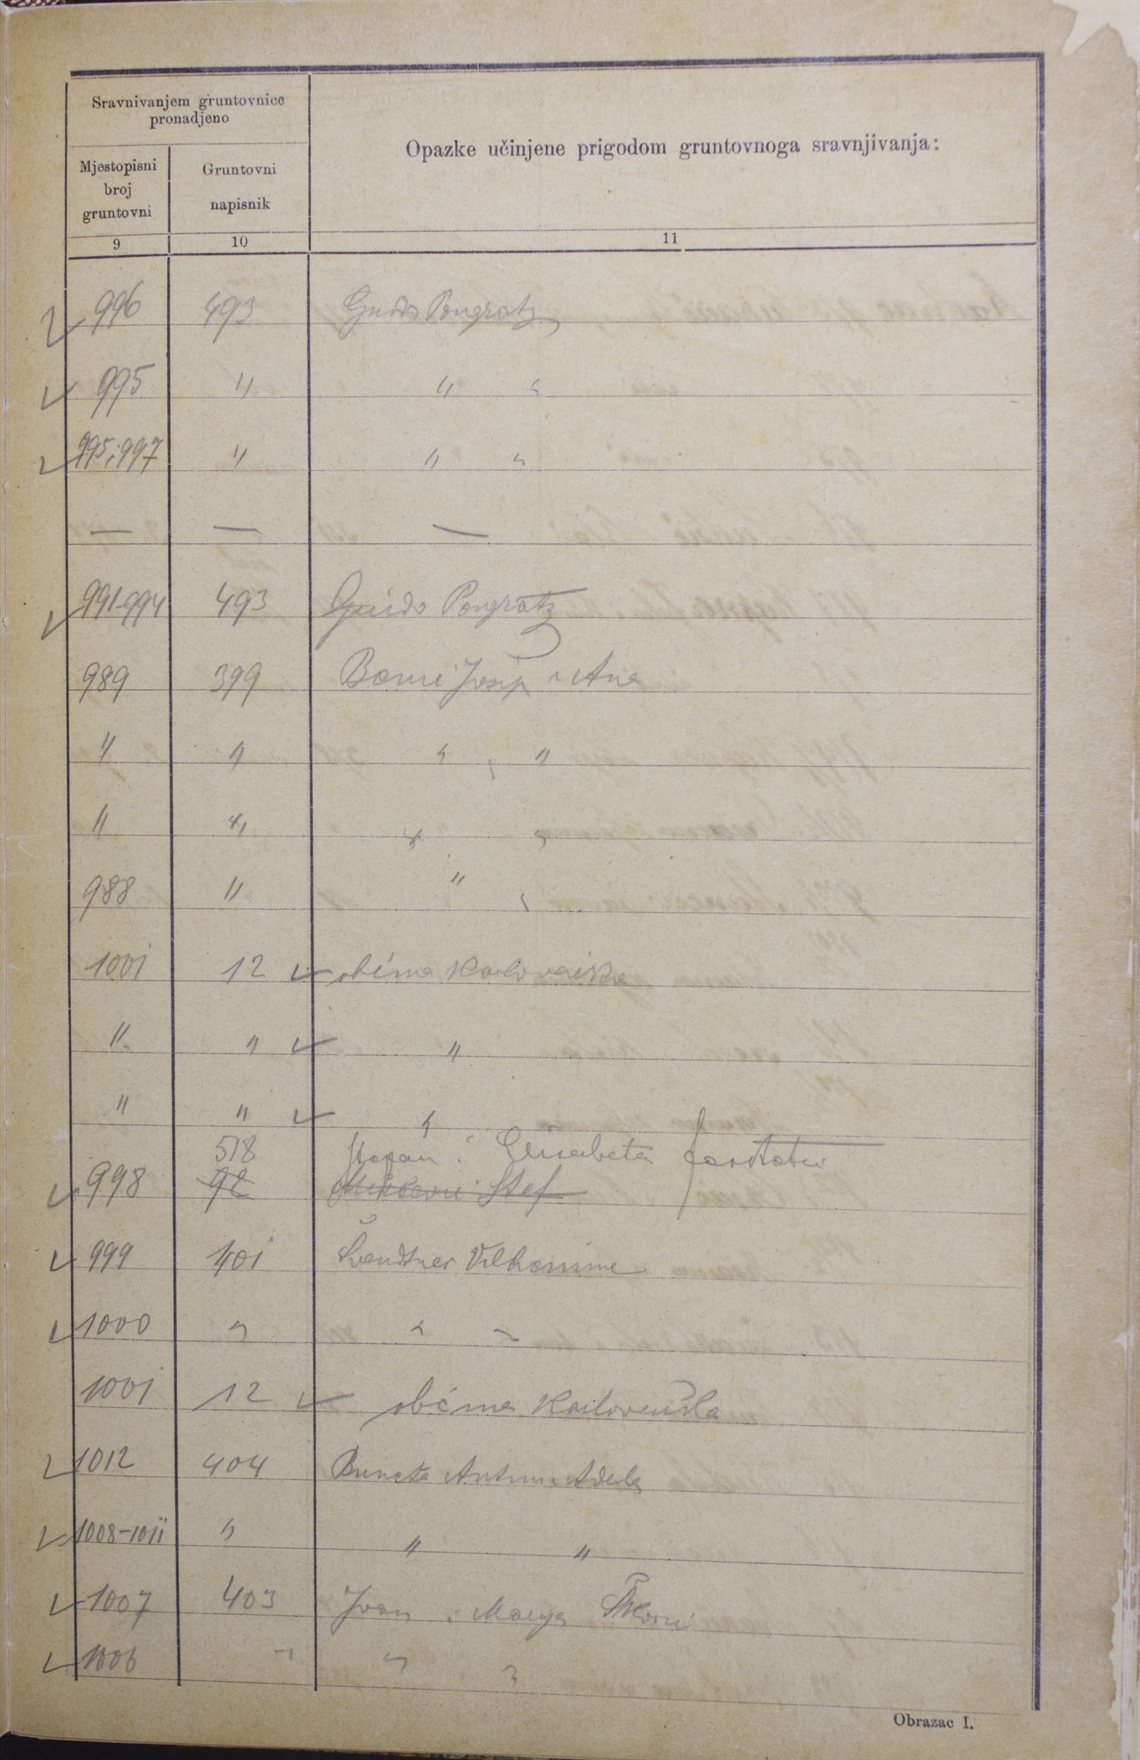 Sravnivanjem gruntovnice
pronadjeno
Opazke učinjene prigodom gruntovnoga sravnjivanja:
Mjestopisni
broj
gruntovni
Gruntovni
napisnik
9 10 11
996 493 Guido Pongratz
995 " " "
995 i 997 " " "
— — —
991-994 493 Guido Pongratz
989 399 Josip i Ana
" " " "
" " " "
988 " " "
1001 12 obćina Karlovačka
" " "
" " "
518 Stepan i Elisabeta
998 92 Stef
999 401 Vilhemine
1000 " " "
1001 12 obćina Karlovačka
1012 404 Antun i Adela
1008-1011 " " "
1007 403 Ivan i Marija
1006 " " "
Obrazac I.